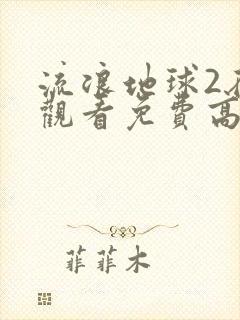 流浪地球2
觀看免費高
菲菲木